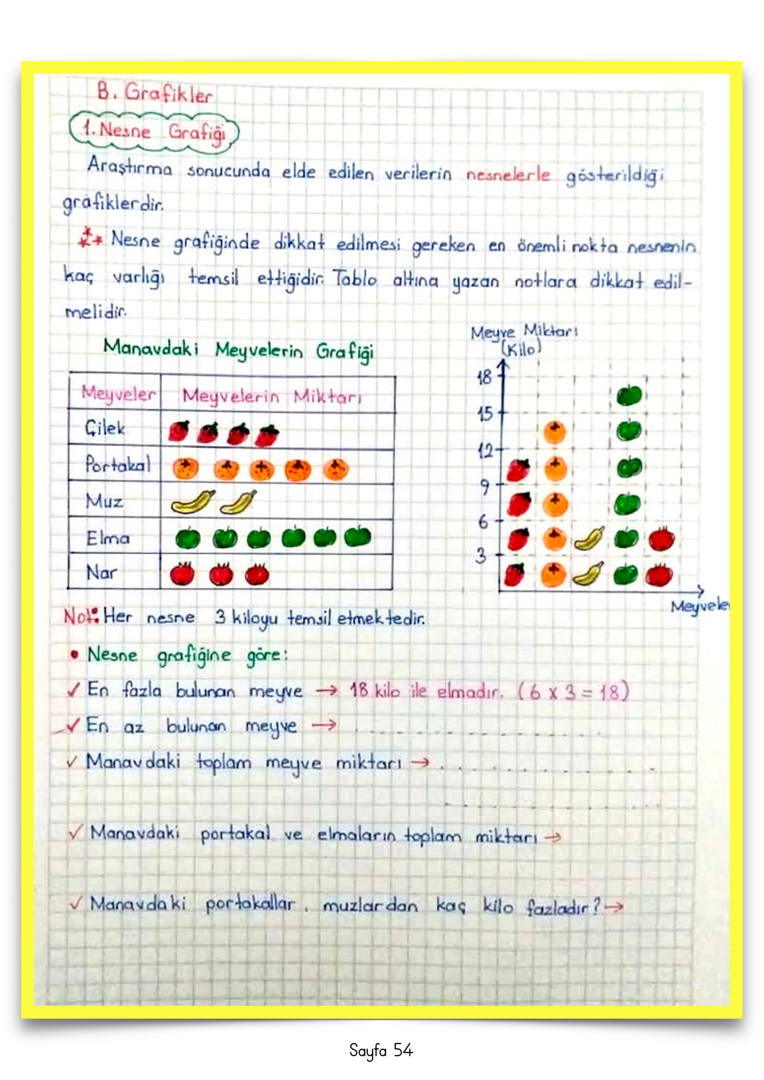 B. Grafikler
1. Nesne Grafiği
Araştırma sonucunda elde edilen verilerin nesnelerle gösterildiği
grafiklerdir.
Nesne grafiğinde dikkat edilmesi gereken en önemli nokta nesnenin
kaç varlığı temsil ettiğidir. Tablo altına yazan notlara dikkat edil-
melidir.
Manavdaki Meyvelerin Grafiği
Meyveler Meyvelerin Miktarı
Çilek
Portakal
Muz
Elma
Nar
Meyve Miktarı
(Kilo)
18
15
12
9
6
3
Meyvele
Not: Her nesne 3 kiloyu temsil etmektedir.
• Nesne grafiğine göre:
✓ En fazla bulunan meyve → 18 kilo ile elmadır. (6 x 3 = 18)
✓ En az bulunan meyve →
✓ Manavdaki toplam meyve miktarı →
✓ Manavdaki portakal ve elmaların toplam miktarı →
✓ Manavdaki portakallar, muzlardan kaç kilo fazladır? →
Sayfa 54